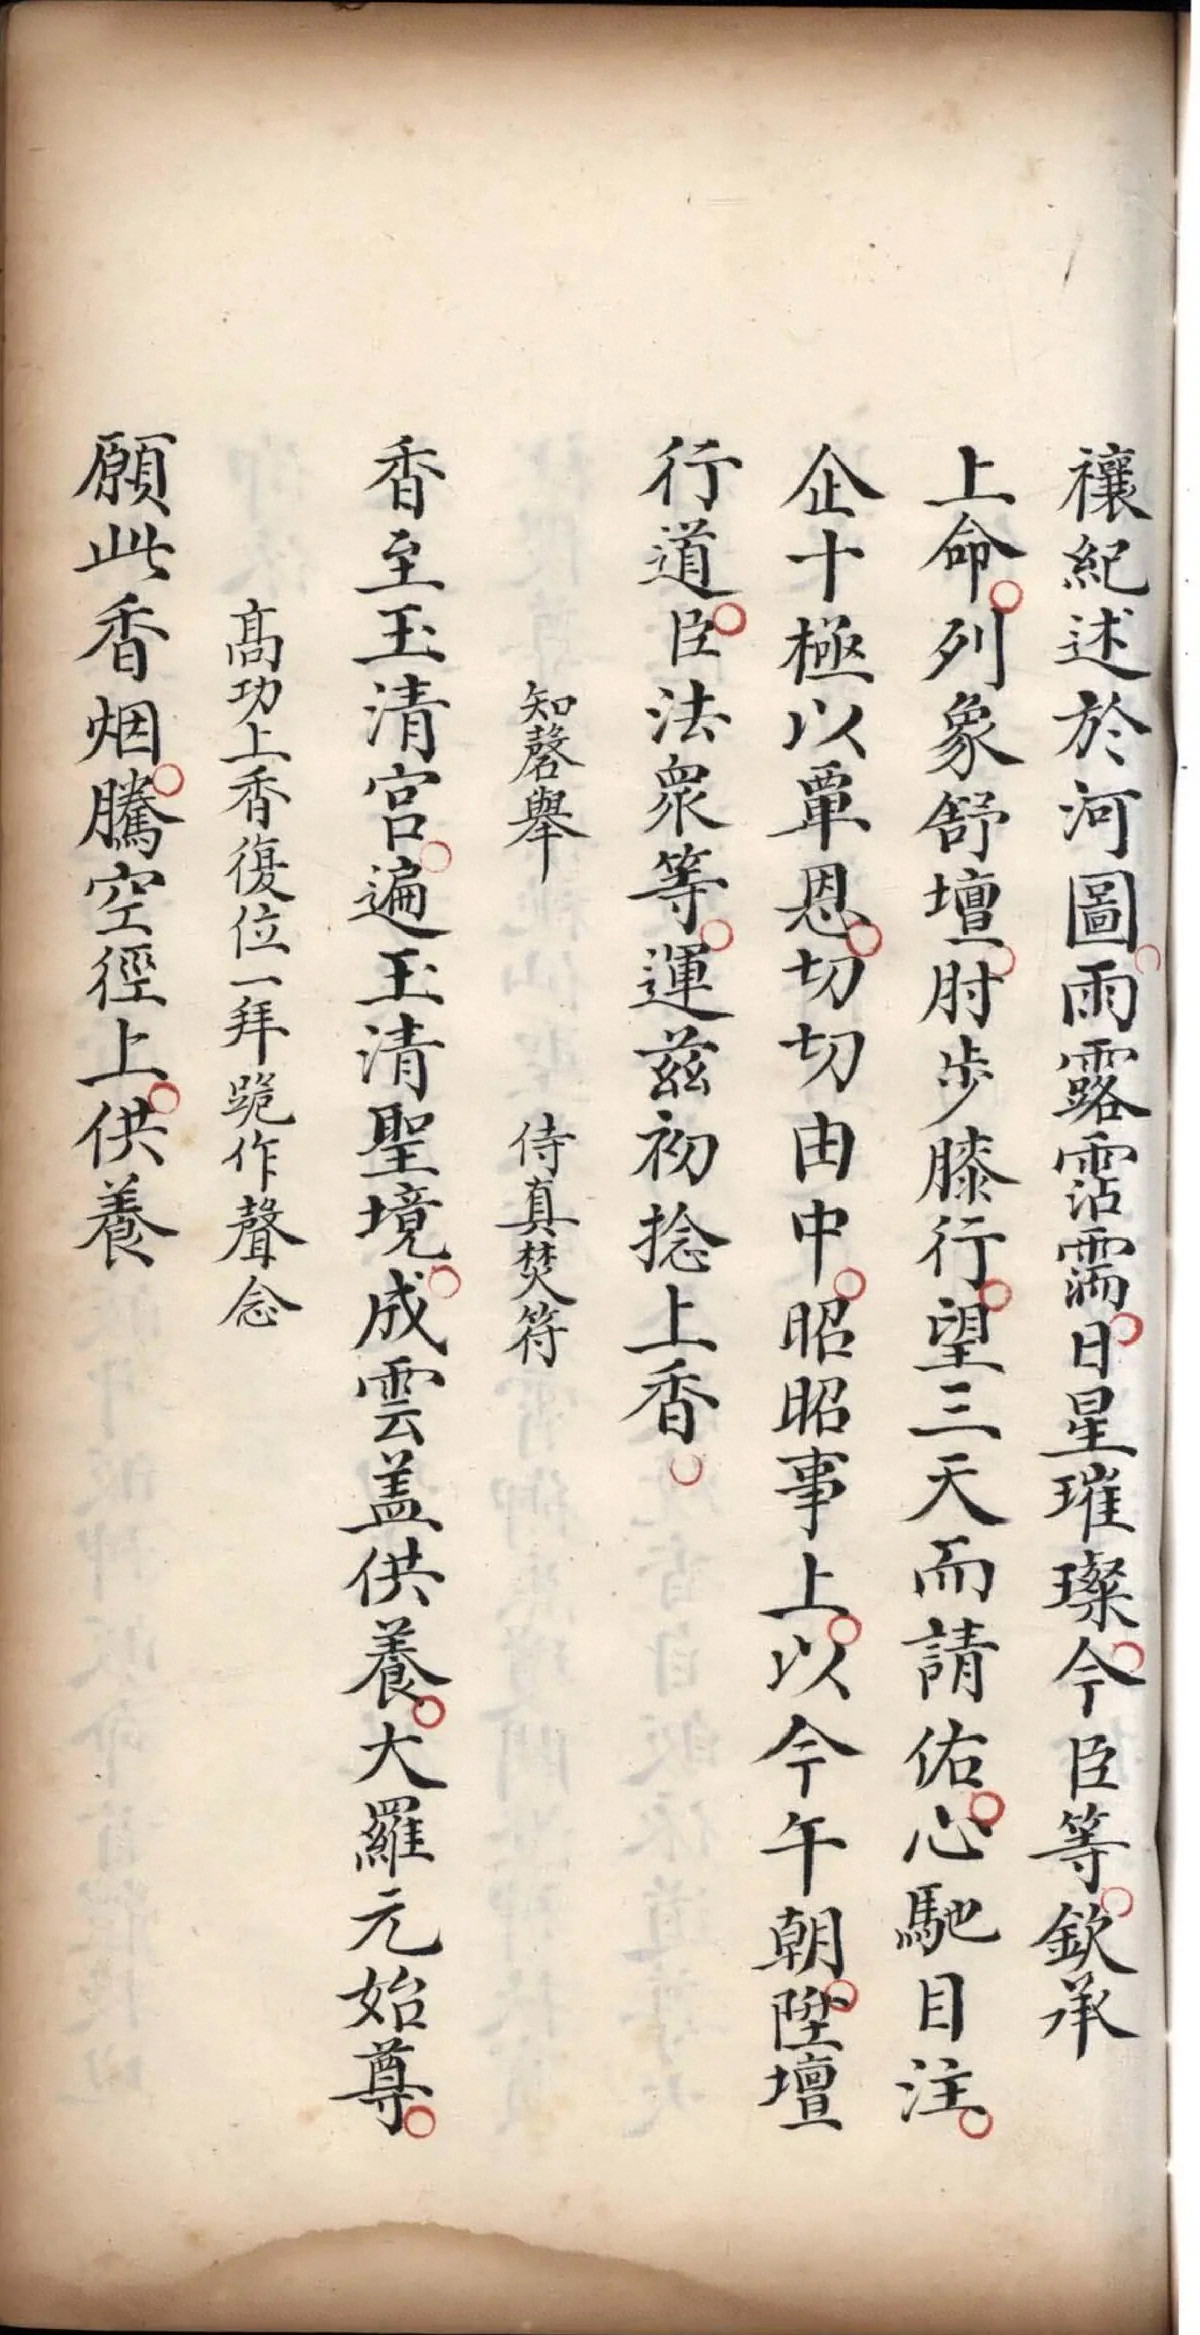 禳紀述於河圖雨露霑濡日星璀璨今臣等欽承
上命列象舒壇肘步膝行望三天而請佑心馳目注
企十極以覃恩切切由中昭昭事上以今午朝陞壇
行道臣法衆等運茲初捻上香
知磬舉　侍真焚符
香至玉清宮遍玉清聖境成雲盖供養大羅元始尊
高功上香復位一拜跪作聲念
願此香烟騰空徑上供養